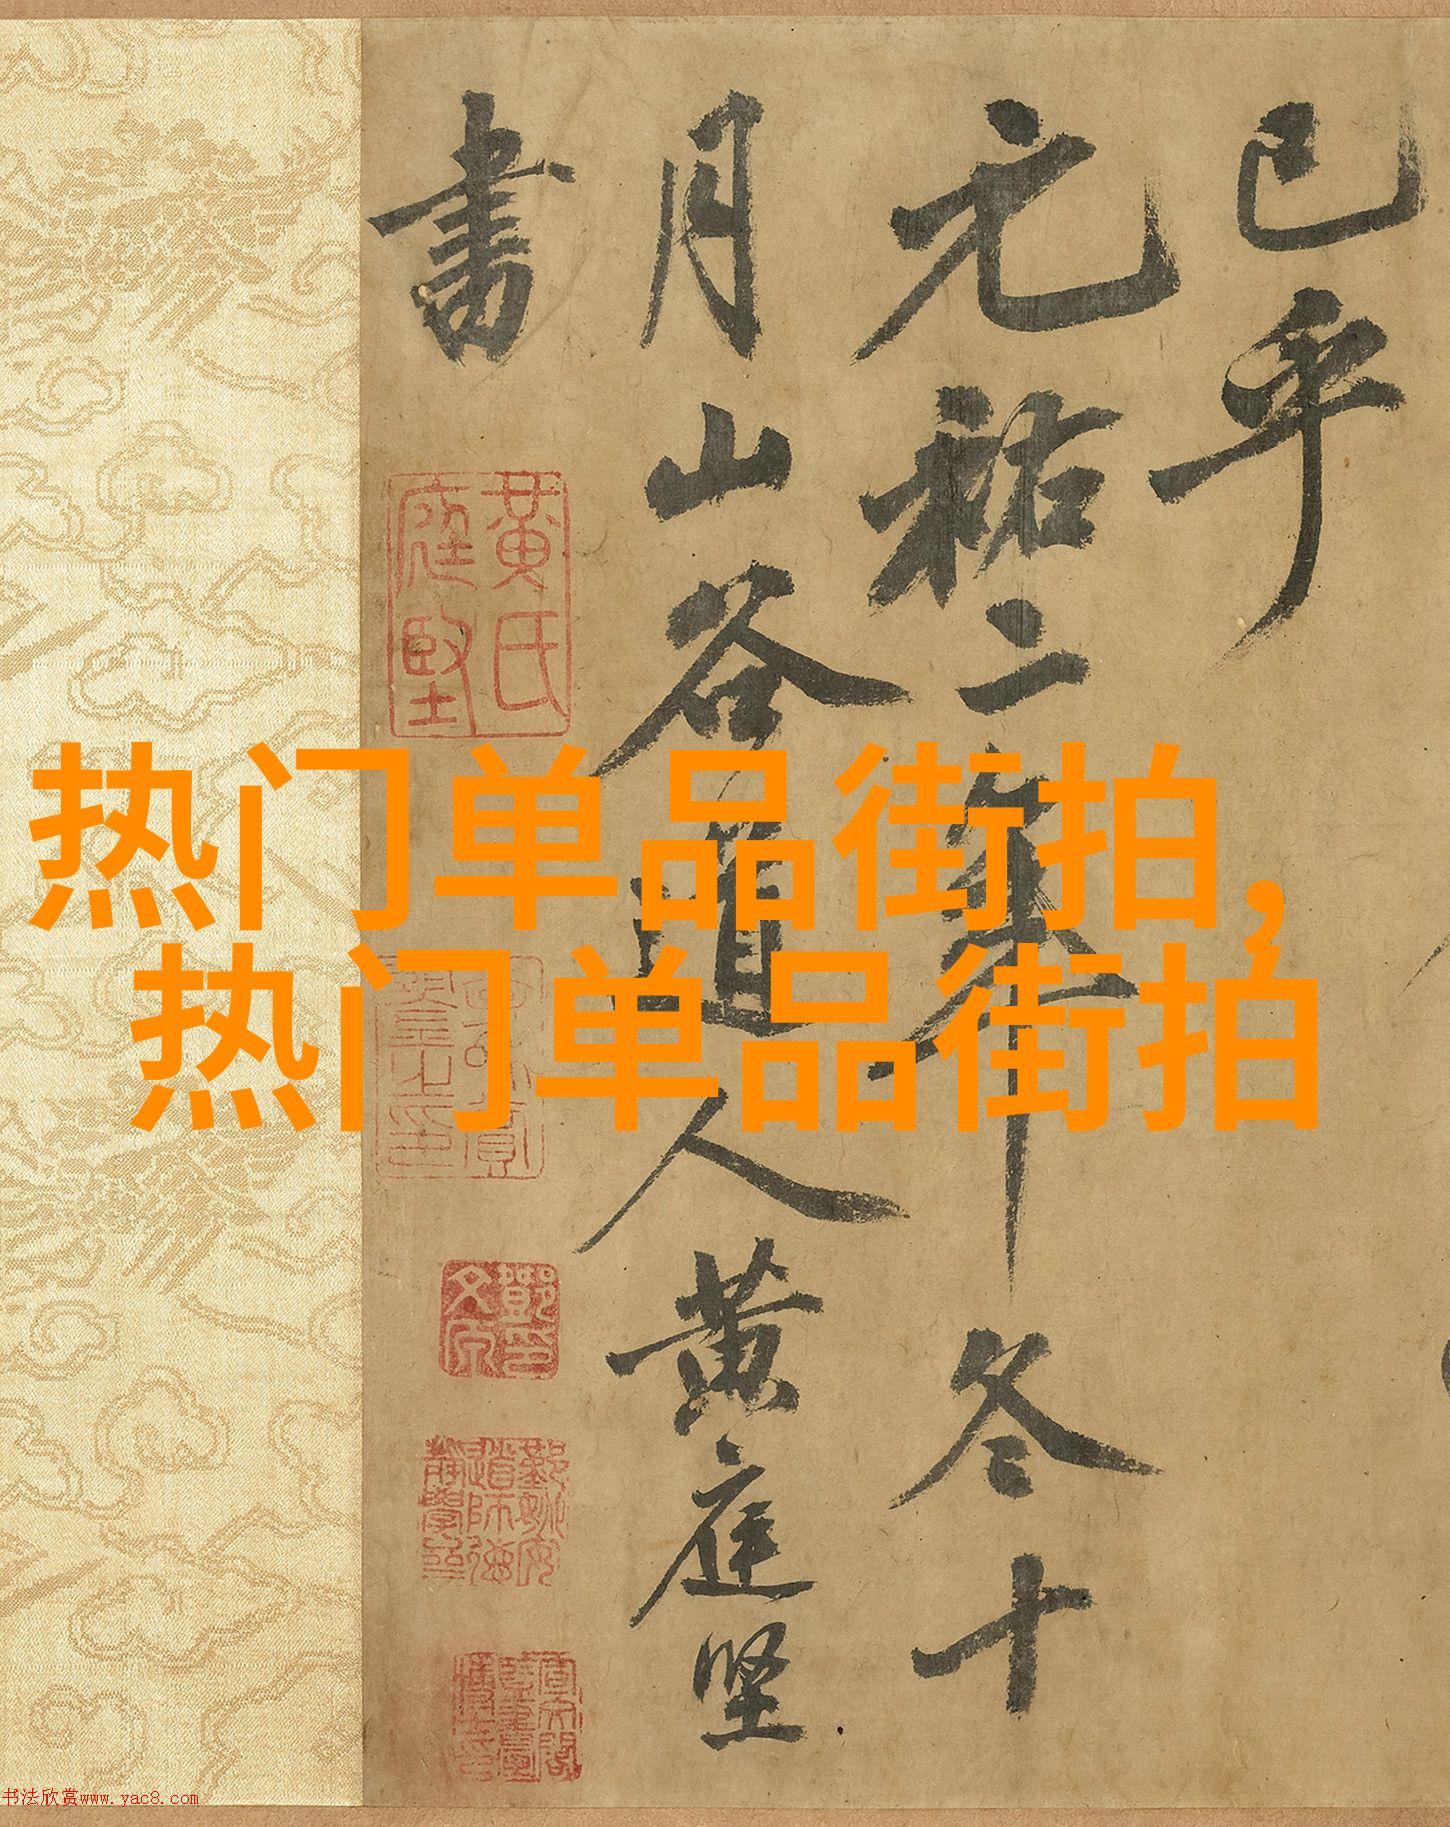 热门单品街拍,
热门单品街拍
已乎
元祐二年冬十
月山谷道人黄庭坚
書
黄氏
庭堅
书法欣赏www.yac8.com